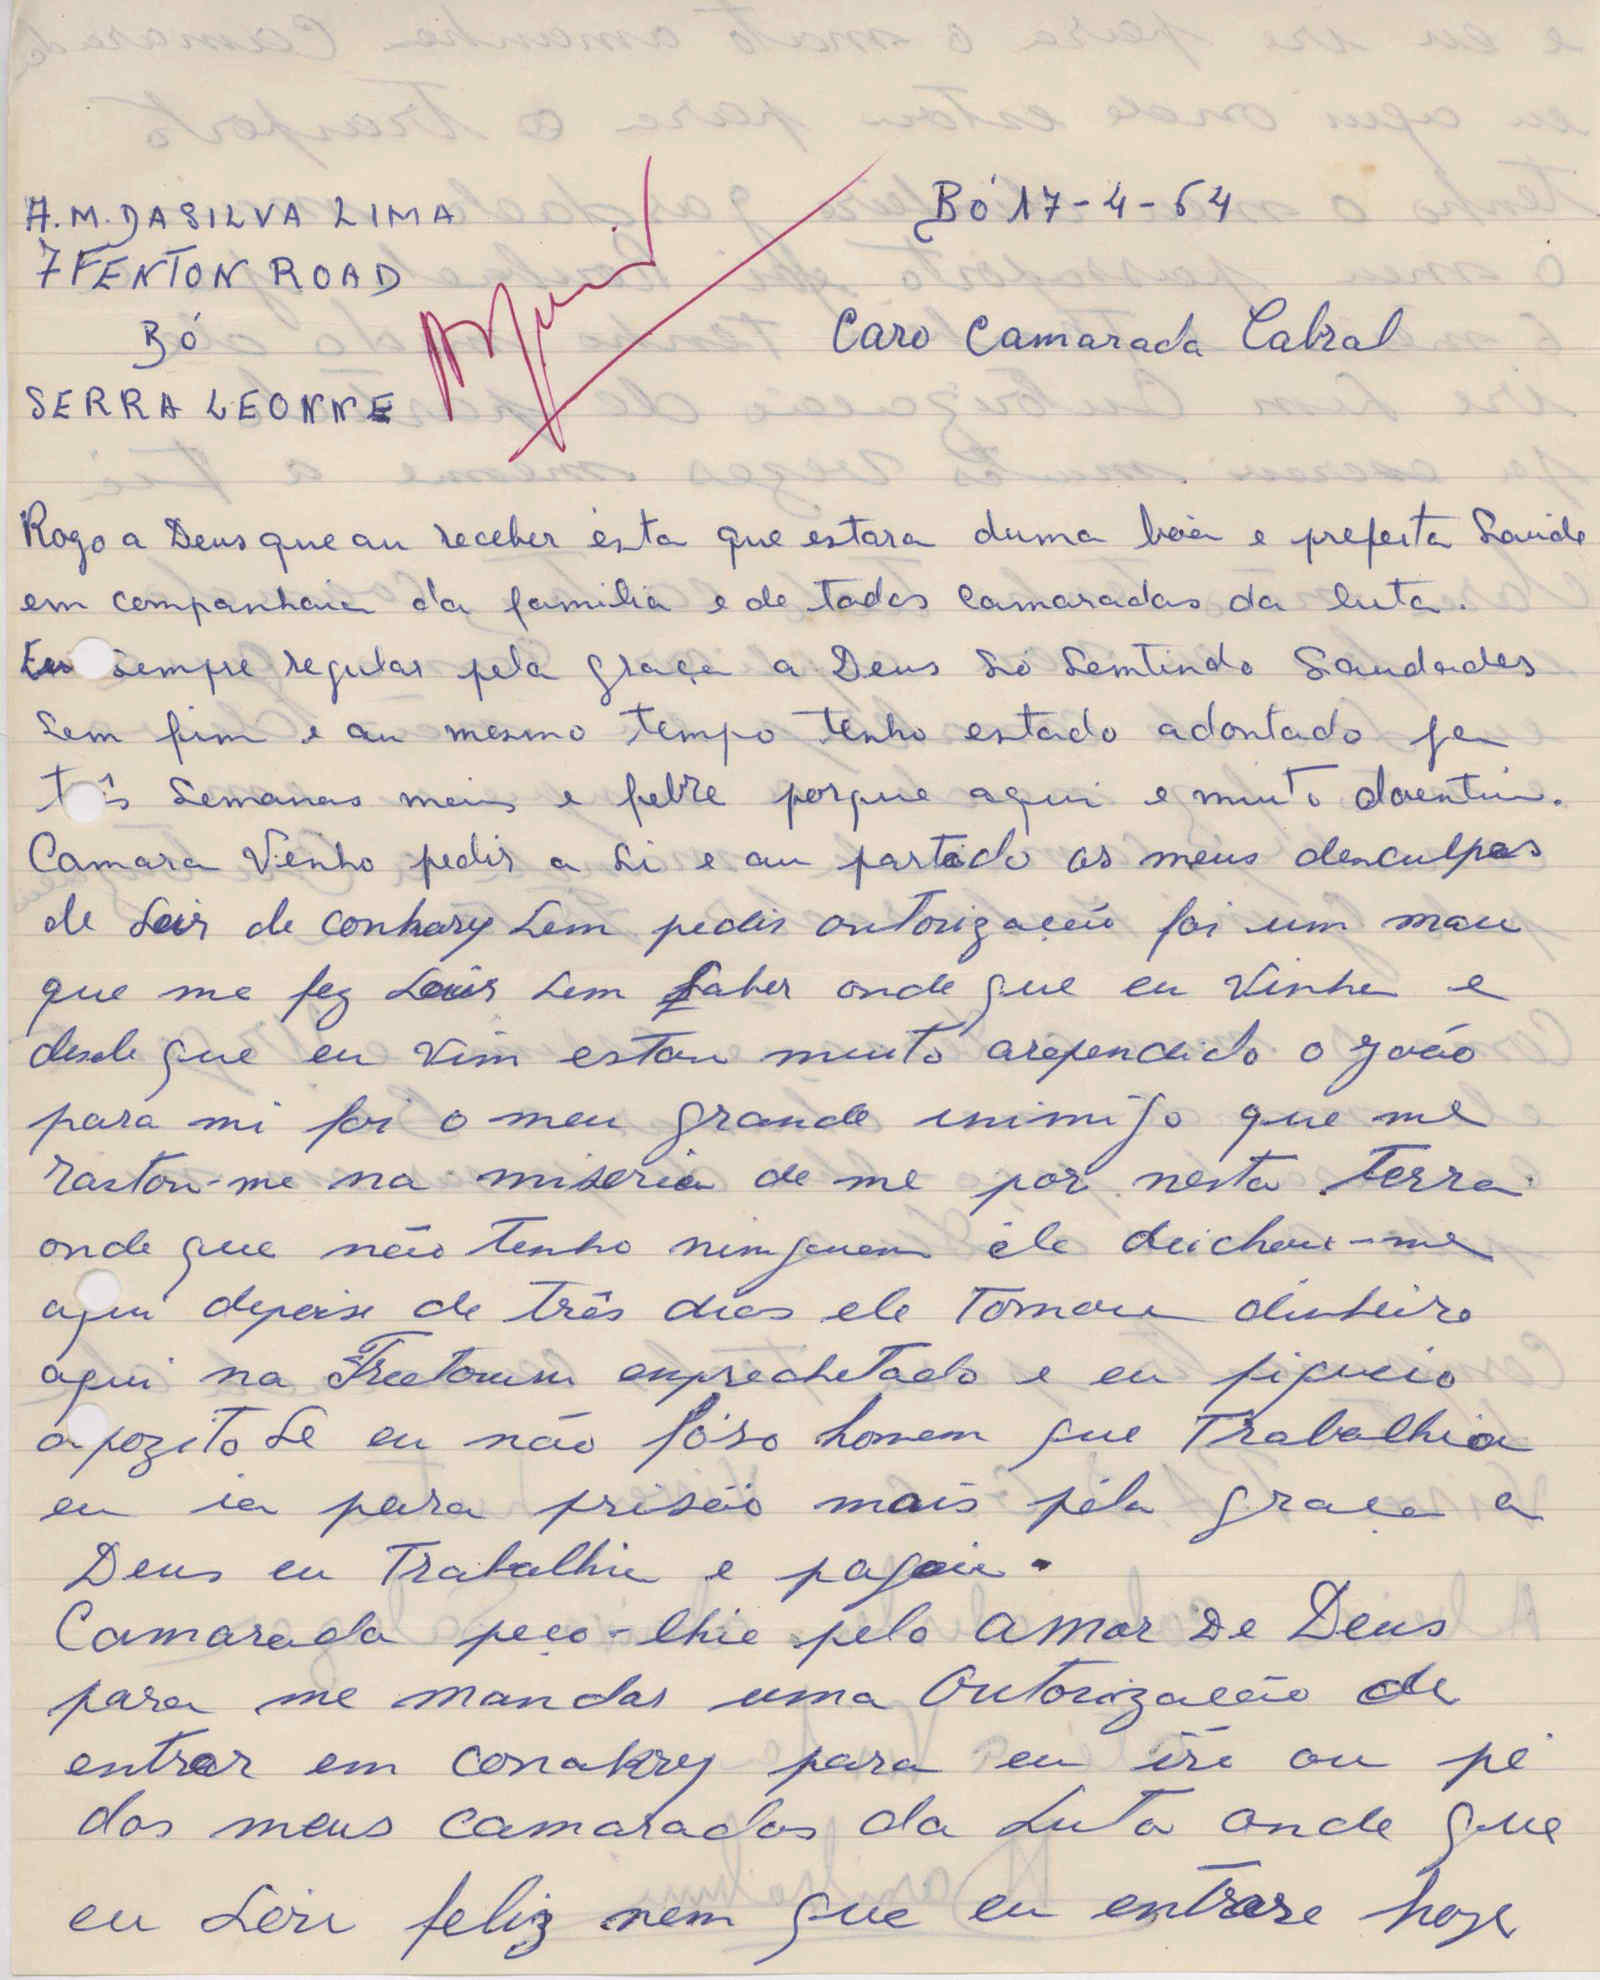 A.M. DA SILVA LIMA
7 FENTON ROAD
BÓ
SERRA LEONNE
Bó 17-4-64
Caro Camarada Cabral
Rogo a Deus que au receber ésta que estara duma bôa e prefeita Saúde
em companhaia da familia e de todos camaradas da luta.
Eu sempre regular pela graça a Deus Só Sentindo Saudades
Sem fim e au mesmo tempo tenho estado adontado ja
três Semanas mais e febre porque aqui e muito doentiu.
Camara Venho pedir a Si e au partido as meus desculpas
de Sair de conkary Sem pedir autorizacão foi um mau
que me fez Sair Sem Saber onde que eu Vinha e
desde que eu Vim estou muito arependido o João
para mi foi o meu grande inimigo que me
rastou-me na miseria de me por nesta Terra
onde que não tenho ninguem éle deichou-me
aqui depeise de três dias ele Tomou dinheiro
aqui na Freetown emprechetado e eu fiqueio
apozito Se eu não fôso homem que Trabalhia
eu ia para prisão mais péla graça a
Deus eu Trabalhie e pagaie.
Camarada peço-lhie pelo AMor De Deus
para me mandar uma Outorizacão de
entrar em conakry para eu ire au pé
dos meus camarados da Luta onde que
eu Sêru feliz nem que eu entrare hoje